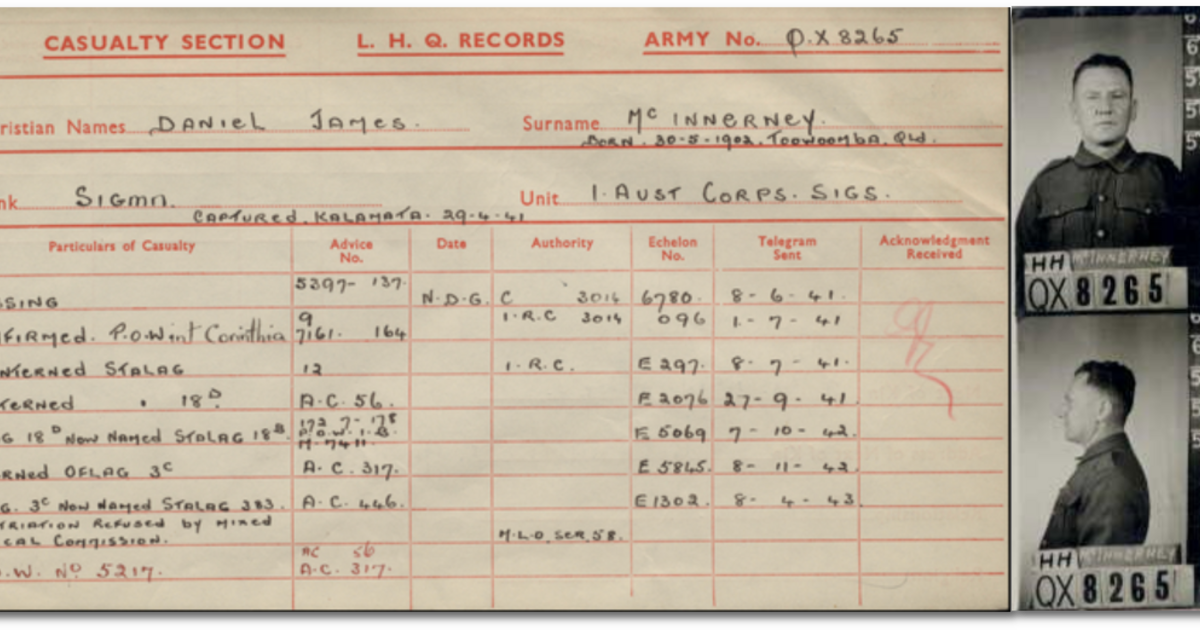 CASUALTY SECTION L. H. Q. RECORDS ARMY No. Q.X 8265
ristian Names DANIEL JAMES. Surname Mc INNERNEY.
BORN. 30-5-1902. TOOWOOMBA. QLD.
nk SIGMN. Unit 1. AUST CORPS. SIGS.
CAPTURED. KALAMATA. 29-4-41
Particulars of Casualty Advice No. Date Authority Echelon No. Telegram Sent Acknowledgment Received
SSING 5397- 137. N.D.G. C 3014 6780. 8-6-41.
FIRMED. P.O.W int Corinthia 9 7161. 164 I.R.C 3014 096 1-7-41
NTERNED STALAG 12 I.R.C. E 297. 8-7-41.
TERNED " 18D. A.C. 56. E 2076 27-9-41
G 18D NOW NAMED STALAG 18B. 173 7-178 P.O.W. 1-B. M-7411. E 5069 7-10-42.
RNED OFLAG 3C A.C. 317. E 5845. 8-11-42.
G. 3C NOW NAMED STALAG 383. A.C. 446. E 1302. 8-4-43
TRIATION REFUSED BY MIXED
ICAL COMMISSION. M.L.O. SER. 58.
.W. No 5217. AC 56
A.C. 317.
HH McINNERNEY
QX 8265
HH McINNERNEY
QX 8265